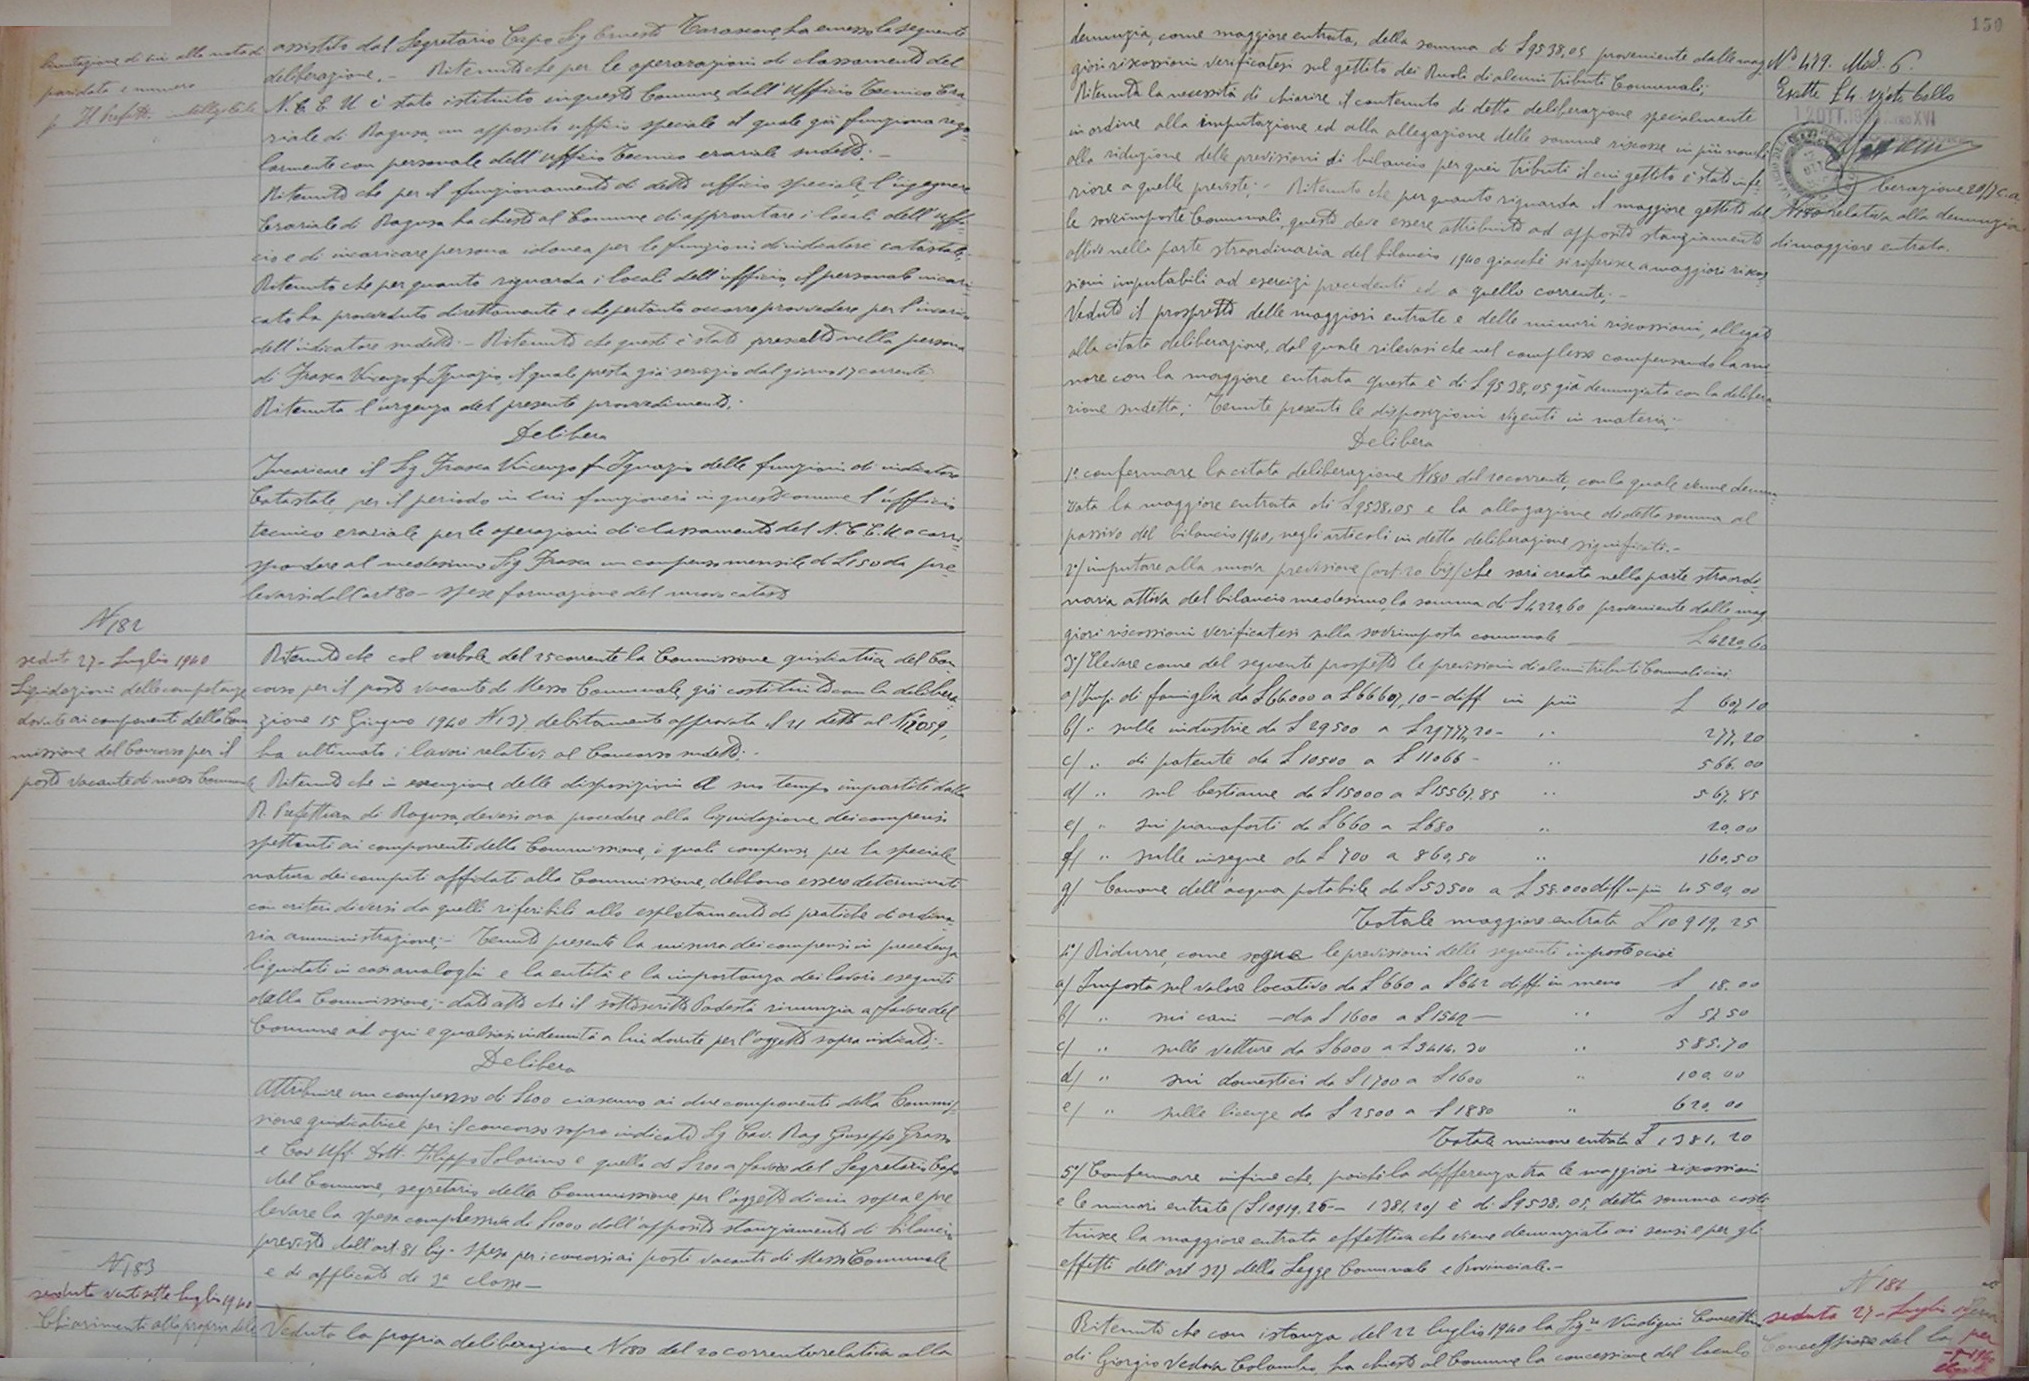 assistito dal Segretario Capo Sig Ernesto ha emesso la seguente
deliberazione. - Ritenuto che per le operazioni di classamento del
N. C. E. U è stato istituito in questo Comune dall'Ufficio Tecnico Era-
riale di Ragusa, un apposito ufficio speciale il quale già funziona rego-
larmente con personale dell'ufficio Tecnico erariale sudetto. -
Ritenuto che per il funzionamento di detto ufficio speciale, l'ingegnere
Erariale di Ragusa ha chiesto al Comune di approntare i locali dell'uffi-
cio e di incaricare persona idonea per le funzioni di indicatore catastale.
Ritenuto che per quanto riguarda i locali dell'ufficio, il personale incari-
cato ha provveduto direttamente e che pertanto occorre provvedere per l'incarico
dell'indicatore sudetto. - Ritenuto che questi è stato prescelto nella persona
di Frasca Vincenzo fu Ignazio, il quale presta già servizio dal giorno 17 corrente.
Ritenuta l'urgenza del presente provvedimento;
Delibera
Incaricare il Sig Frasca Vincenzo fu Ignazio delle funzioni di indicatore
Catastale, per il periodo in cui funzionerà in questo comune l'ufficio
tecnico erariale per le operazioni di classamento del N. C. E. U. e corri-
spondere al medesimo Sig Frasca un compenso mensile di L 150 da pre-
levarsi dall'art 80 - spese formazione del nuovo catasto
N 182
seduta 27 - Luglio 1940
Liquidazioni delle competenze
dovute ai componenti della Com
missione del Concorso per il
posto vacante di messo Comunale
Ritenuto che col verbale del 25 corrente la Commissione giudicatrice del Con
corso per il posto vacante di Messo Comunale, già costituito con la delibera-
zione 15 Giugno 1940 N 137 debitamente approvata il 21 detto al N 12059,
ha ultimato i lavori relativi al Concorso sudetto; -
Ritenuto che in esecuzione delle disposizioni a suo tempo impartite dalla
R. Prefettura di Ragusa, devesi ora procedere alla liquidazione dei compensi
spettanti ai componenti della Commissione, i quali compensi, per la speciale
natura dei compiti affidati alla Commissione, debbono essere determinati
con criteri diversi da quelli riferibili allo espletamento di pratiche di ordina-
ria amministrazione; - Tenuto presente la misura dei compensi in precedenza
liquidati in casi analoghi e la entità e la importanza dei lavori eseguiti
dalla Commissione; - dato atto che il sottoscritto Podestà rinunzia a favore del
Comune ad ogni e qualsiasi indennità a lui dovute per l'oggetto sopra indicato; -
Delibera
Attribuire un compenso di L 400 ciascuno ai due componenti della Commis-
sione giudicatrice per il concorso sopra indicato Sig Cav. Rag Giuseppe Grasso
e Cav Uff. Dott. Filippo Solarino e quello di L 200 a favore del Segretario Capo
del Comune, segretario della Commissione per l'oggetto di cui sopra e pre
levare la spesa complessiva di L 1000 dall'apposito stanziamento di bilancio
previsto dall'art 81 bis - spesa per i concorsi ai posti vacanti di Messo Comunale
e di applicato di 3a classe -
N 183
seduta ventisette luglio 1940
Chiarimenti alla propria deli
Veduta la propria deliberazione N 180 del 20 corrente relativa alla
150
denunzia, come maggiore entrata, della somma di L 9538,05 proveniente dalle mag
giori riscossioni verificatesi sul gettito dei Ruoli di alcuni tributi Comunali;
Ritenuta la necessità di chiarire il contenuto di detta deliberazione specialmente
in ordine alla imputazione ed alla allegazione delle somme riscosse in più nonchè
alla riduzione delle previsioni di bilancio per quei tributi il cui gettito è stato infe
riore a quelle previste; - Ritenuto che per quanto riguarda il maggiore gettito del
le sovrimposte Comunali, questo deve essere attribuito ad apposito stanziamento
attivo nella parte straordinaria del bilancio 1940 giacchè si riferisce a maggiori riscos
sioni imputabili ad esercizi precedenti ed a quello corrente; -
Veduto il prospetto delle maggiori entrate e delle minori riscossioni, allegato
alla citata deliberazione, dal quale rilevasi che nel complesso compensando la mi
nore con la maggiore entrata questa è di L 9538,05 già denunziata con la delibera-
zione sudetta; Tenute presenti le disposizioni vigenti in materia; -
Delibera
1° confermare la citata deliberazione N 180 del 20 corrente, con la quale venne denun-
ziata la maggiore entrata di L 9538,05 e la allegazione di detta somma al
passivo del bilancio 1940, negli articoli in detta deliberazione significati. -
2°/ imputare alla nuova previsione (art. 20 bis) che sarà creata nella parte straordi
naria attiva del bilancio medesimo, la somma di L 4220,60 proveniente dalle mag
giori riscossioni verificatesi sulla sovrimposta comunale L 4220,60
3°/ Elevare come del seguente prospetto le previsioni di alcuni tributi Comunali cioè
a/ Imp. di famiglia da L 66000 a L 66607,10 - diff in più L 607,10
b/ " sulle industrie da L 29500 a L 29777,20 - " 277,20
c/ " di patente da L 10500 a L 11066 - " 566.00
d/ " sul bestiame da L 15000 a L 15567,85 " 567,85
e/ " sui pianoforti da L 660 a L 680 " 20,00
f/ " sulle insegne da L 700 a 860,50 " 160,50
g/ Canone dell'acqua potabile da L 53500 a L 58.000 diff in più 4500,00
Totale maggiore entrata L 10919,25
4°/ Ridurre, come segue le previsioni delle seguenti imposte cioè
a/ Imposta sul valore locativo da L 660 a L 642 diff in meno L 18.00
b/ " sui cani - da L 1600 a L 1542 - " L 57,50
c/ " sulle vetture da L 6000 a L 5414.30 " 585.70
d/ " sui domestici da L 1700 a L 1600 " 100.00
e/ " sulle licenze da L 2500 a L 1880 " 620.00
Totale minore entrata L 1381,20
5°/ Confermare infine che, poichè la differenza tra le maggiori riscossioni
e le minori entrate (L 10919.25 - 1381.20) è di L 9538.05, detta somma costi
tuisce la maggiore entrata effettiva che viene denunziata ai sensi e per gli
effetti dell'art 327 della Legge Comunale e Provinciale. -
Ritenuto che con istanza del 22 luglio 1940 la Sig.ra Vindigni Concetta
di Giorgio vedova Colombo, ha chiesto al Comune la concessione del loculo
N° 479. Mod. 6.
Esatte L 4
berazione 20/7 c.a.
N 180 relativa alla denunzia
di maggiore entrata.
N 184
seduta 27 - Luglio
Concessione del lo